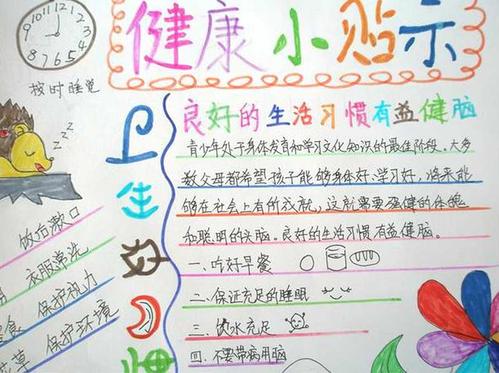 健康小贴示
10 11 12 1 2 3 4 5 6 7 8 9
按时睡觉
zzz
卫生好习
饭后漱口
衣服常洗
保护视力
保护环境
良好的生活习惯有益健脑
青少年处于身体发育和学习文化知识的最佳阶段。大多
数父母都希望孩子能够身体好、学习好,将来能
够在社会上有所成就,这就需要强健的体魄
和聪明的大脑。良好的生活习惯有益健脑。
一、吃好早餐
二、保证充足的睡眠
三、饮水充足
四、不要带病用脑